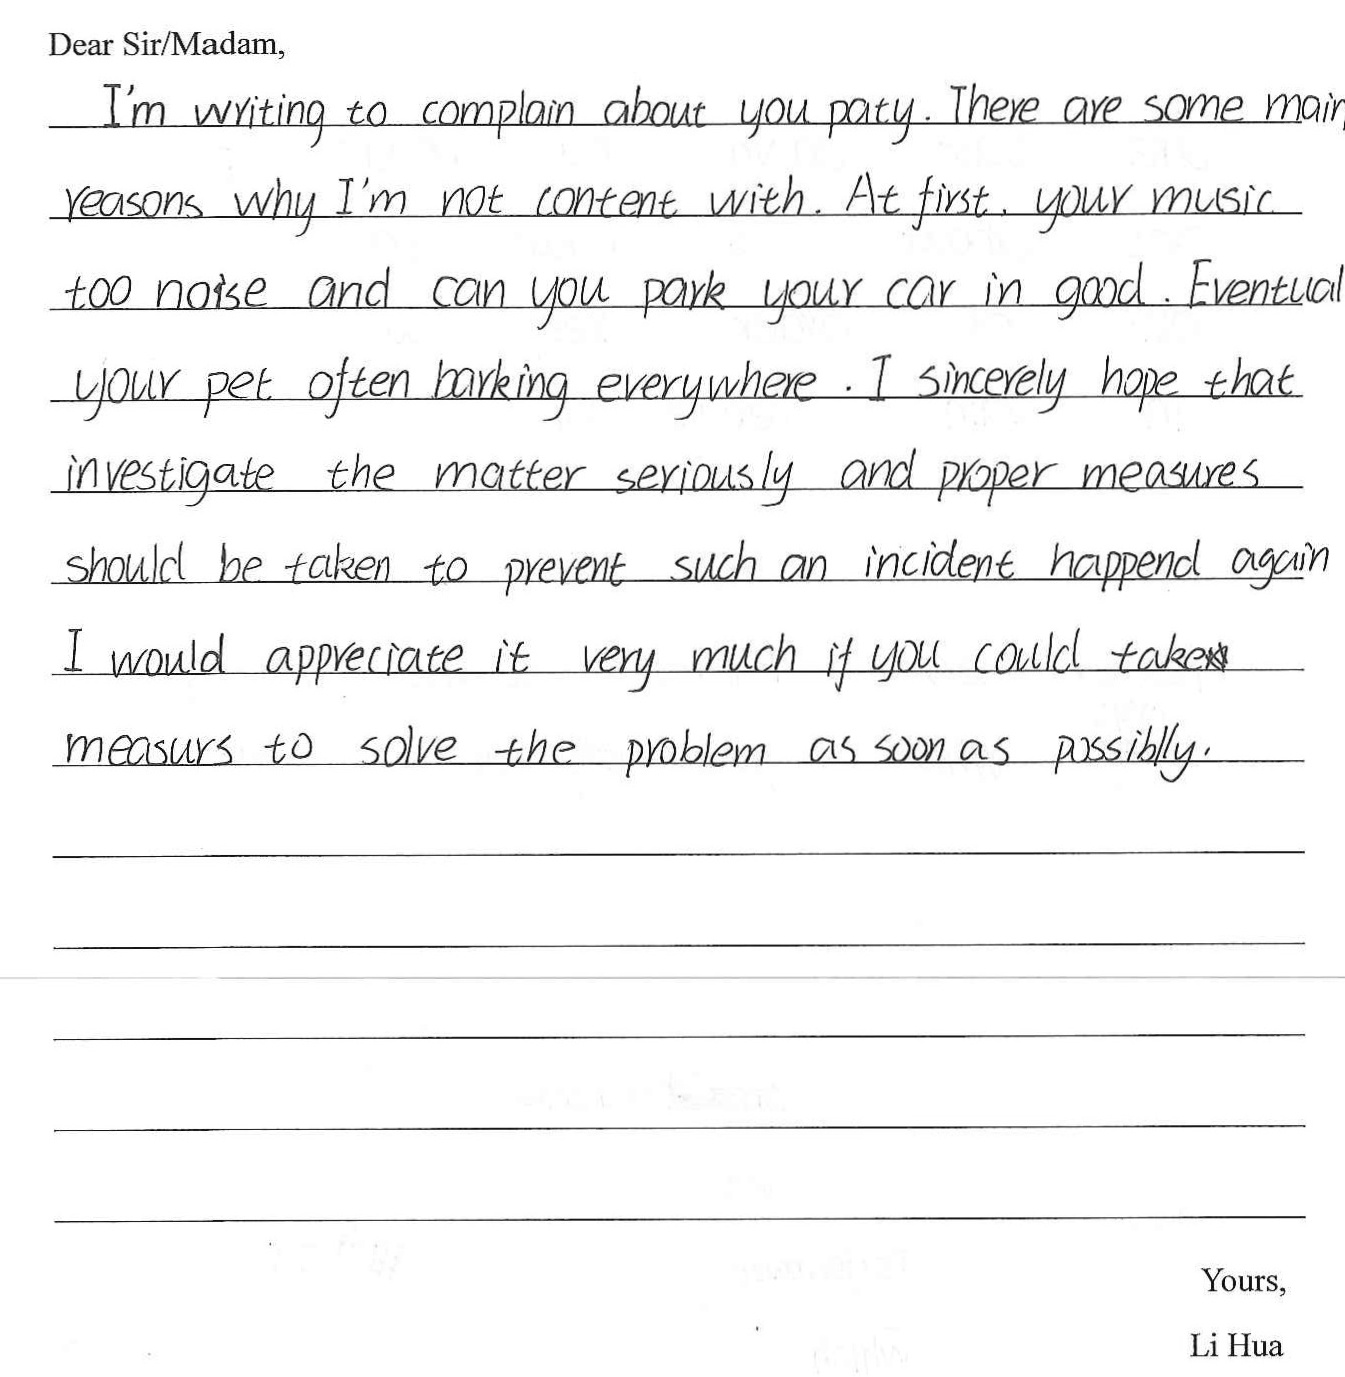 Dear Sir/Madam,
I'm writing to complain about you paty. There are some main
reasons why I'm not content with. At first. your music
too noise and can you park your car in good. Eventual
your pet often barking everywhere. I sincerely hope that
investigate the matter seriously and proper measures
should be taken to prevent such an incident happend again
I would appreciate it very much if you could take
measurs to solve the problem as soon as possiblly.
Yours,
Li Hua